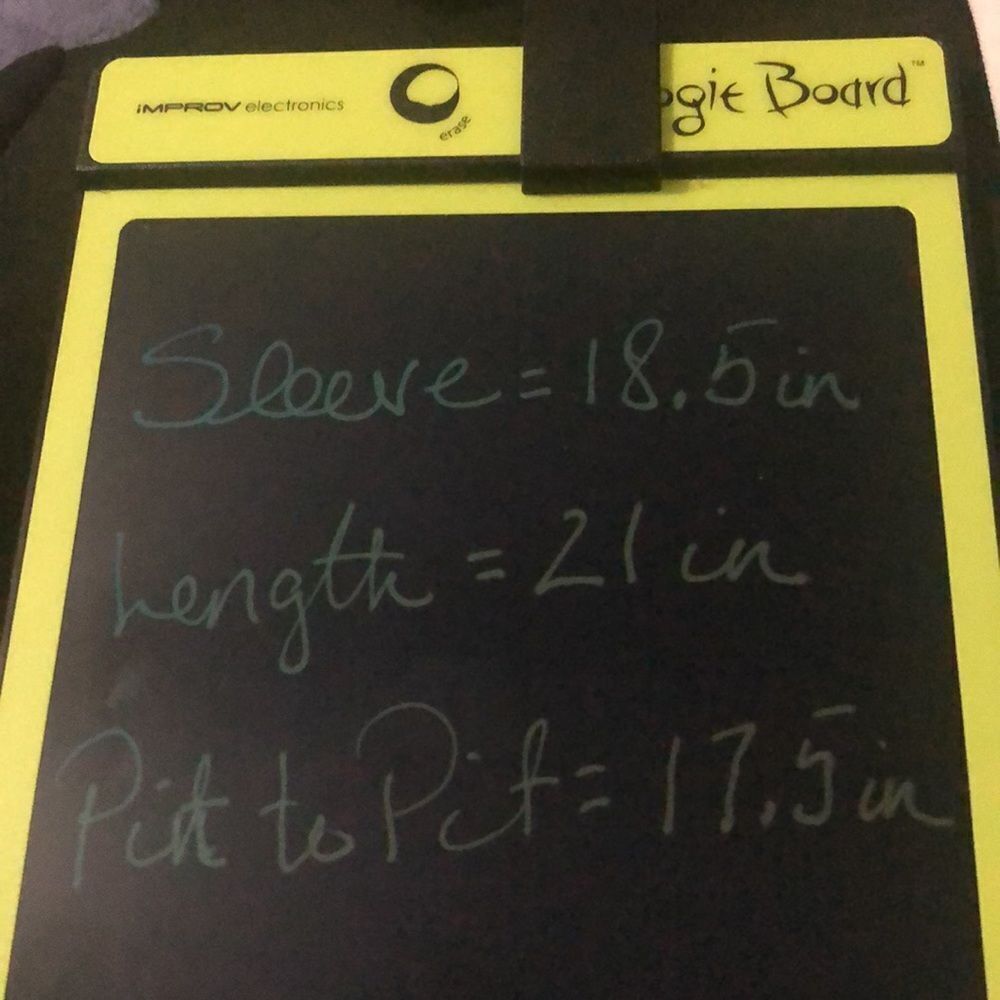 iMPROV electronics
erase
ogie Board™
Sleeve = 18.5 in
Length = 21 in
Pit to Pit = 17.5 in